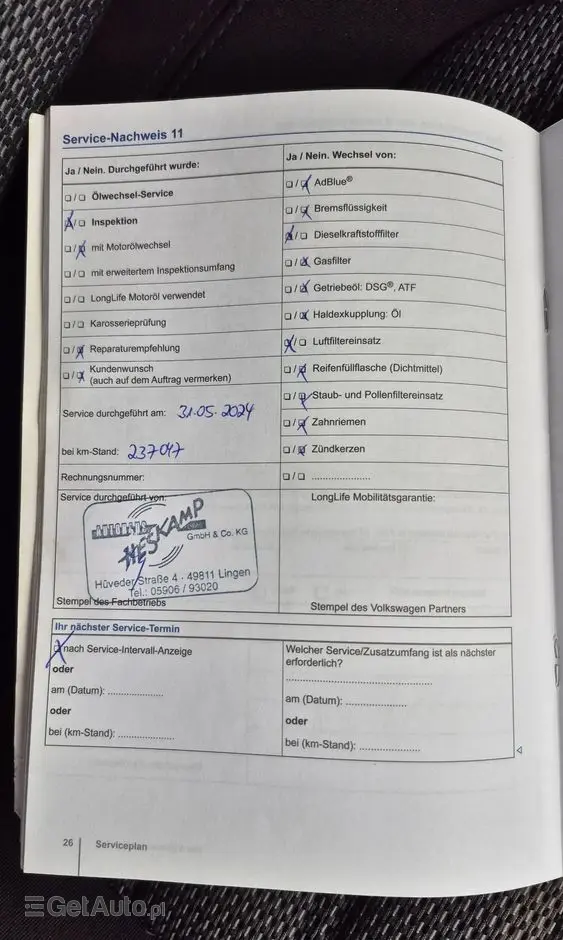 Service-Nachweis 11
Ja / Nein. Durchgeführt wurde:
☐/☐ Ölwechsel-Service
☒/☐ Inspektion
☐/☒ mit Motorölwechsel
☐/☐ mit erweitertem Inspektionsumfang
☐/☐ LongLife Motoröl verwendet
☐/☐ Karosserieprüfung
☐/☒ Reparaturempfehlung
☐/☒ Kundenwunsch
(auch auf dem Auftrag vermerken)
Service durchgeführt am: 31.05.2024
bei km-Stand: 237047
Rechnungsnummer:
Service durchgeführt von:
HESKAMP
GmbH & Co. KG
Hüveder Straße 4 · 49811 Lingen
Tel.: 05906 / 93020
Stempel des Fachbetriebs
Ja / Nein. Wechsel von:
☐/☒ AdBlue®
☐/☒ Bremsflüssigkeit
☒/☐ Dieselkraftstofffilter
☐/☒ Gasfilter
☐/☒ Getriebeöl: DSG®, ATF
☐/☒ Haldexkupplung: Öl
☒/☐ Luftfiltereinsatz
☐/☒ Reifenfüllflasche (Dichtmittel)
☐/☒ Staub- und Pollenfiltereinsatz
☐/☒ Zahnriemen
☐/☒ Zündkerzen
☐/☐ .....................
LongLife Mobilitätsgarantie:
Stempel des Volkswagen Partners
Ihr nächster Service-Termin
☒ nach Service-Intervall-Anzeige
oder
am (Datum): .....................
oder
bei (km-Stand): .....................
Welcher Service/Zusatzumfang ist als nächster
erforderlich?
.....................
am (Datum): .....................
oder
bei (km-Stand): .....................
26 Serviceplan
GetAuto.pl